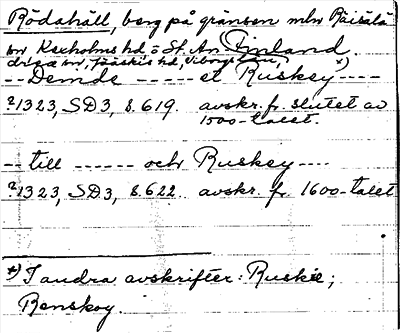 Rödahäll, berg på gränsen mln Räisälä
sn Kexholms hd o S:t An Finland.
drea sn, Jääskis hd, Viborgs län,
-- Demde ----- et Ruskey x) ----
a 1323, SD3, s. 619. avskr. fr. slutet av
1500-talet.
-- till ------ och Ruskey ----
a 1323, SD3, s. 622. avskr. fr 1600-talet
x) I andra avskrifter: Ruskie;
Renskoy.